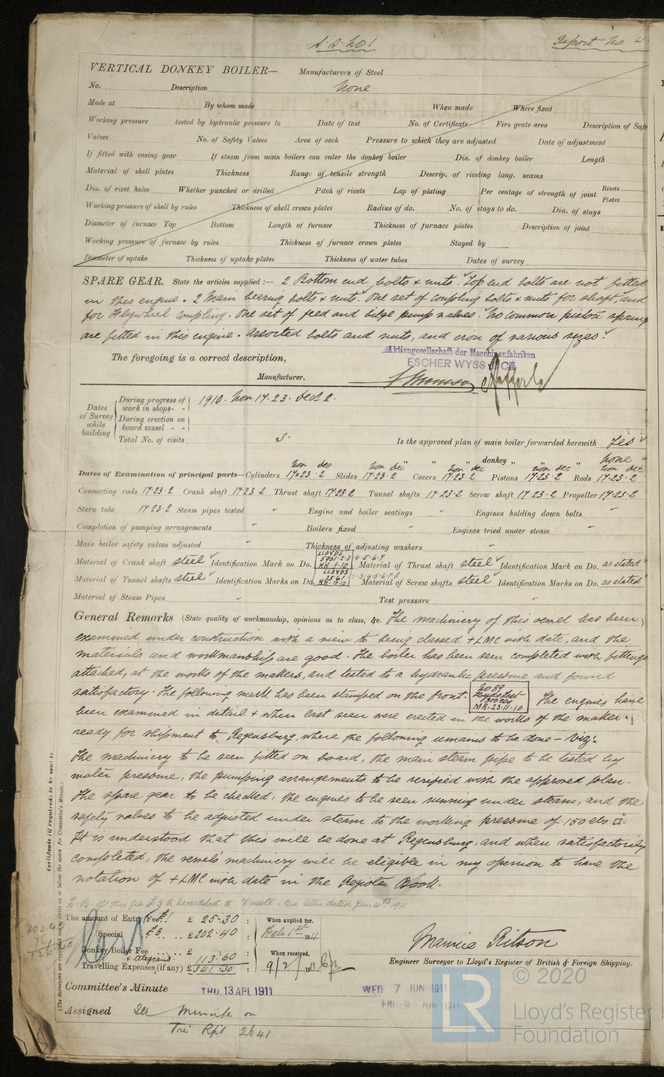 VERTICAL DONKEY BOILER— Manufacturers of Steel
No. Description None
Made at By whom made When made Where fixed
Working pressure tested by hydraulic pressure to Date of test No. of Certificate Fire grate area Description of Safe
Valves No. of Safety Valves Area of each Pressure to which they are adjusted Date of adjustment
If fitted with easing gear If steam from main boilers can enter the donkey boiler Dia. of donkey boiler Length
Material of shell plates Thickness Range of tensile strength Descrip. of riveting long. seams
Dia. of rivet holes Whether punched or drilled Pitch of rivets Lap of plating Per centage of strength of joint Rivets Plates
Working pressure of shell by rules Thickness of shell crown plates Radius of do. No. of stays to do. Dia. of stays
Diameter of furnace Top Bottom Length of furnace Thickness of furnace plates Description of joint
Working pressure of furnace by rules Thickness of furnace crown plates Stayed by
Diameter of uptake Thickness of uptake plates Thickness of water tubes Dates of survey
SPARE GEAR. State the articles supplied:— 2 Bottom end bolts & nuts. Top end bolts are not fitted
in this engine. 2 Main bearing bolts & nuts. One set of coupling bolts & nuts for shaft, and
for Flywheel coupling. One set of feed and bilge pump valves. No common piston springs
are fitted in this engine. Assorted bolts and nuts, and iron of various sizes.
The foregoing is a correct description,
Aktiengesellschaft der Maschinenfabriken
ESCHER WYSS & CIE
Manufacturer.
Dates of Survey while building
During progress of work in shops - - 1910. Nov 17-23. Dec 2.
During erection on board vessel - -
Total No. of visits 3.
Is the approved plan of main boiler forwarded herewith Yes
" " donkey " " " None
Dates of Examination of principal parts—Cylinders 17-23-2 Slides 17-23-2 Covers 17-23-2 Pistons 17-23-2 Rods 17-23-2
Connecting rods 17-23-2 Crank shaft 17-23-2 Thrust shaft 17-23-2 Tunnel shafts 17-23-2 Screw shaft 17-23-2 Propeller 17-23-2
Stern tube 17-23-2 Steam pipes tested " Engine and boiler seatings " Engines holding down bolts "
Completion of pumping arrangements " Boilers fixed " Engines tried under steam "
Main boiler safety valves adjusted " Thickness of adjusting washers
Material of Crank shaft steel Identification Mark on Do. Material of Thrust shaft steel Identification Mark on Do. as stated
Material of Tunnel shafts steel Identification Marks on Do. Material of Screw shafts steel Identification Marks on Do. as stated
Material of Steam Pipes " Test pressure
General Remarks (State quality of workmanship, opinions as to class, &c. The machinery of this vessel has been
examined under construction with a view to being classed +LMC with date, and the
materials and workmanship are good. The boiler has been seen completed with fittings
attached, at the works of the makers, and tested to a hydraulic pressure and found
satisfactory. The following mark has been stamped on the front. The engines have
been examined in detail & when last seen were erected in the works of the maker
ready for shipment to Regensburg where the following remains to be done - viz:
The machinery to be seen fitted on board, the main steam pipe to be tested by
water pressure, the pumping arrangements to be verified with the approved plan.
The spare gear to be checked, the engines to be seen running under steam, and the
safety valves to be adjusted under steam to the working pressure of 150 lbs □.
It is understood that this will be done at Regensburg, and when satisfactorily
completed, the vessels machinery will be eligible in my opinion to have the
notation of +LMC with date in the Register Book.
The amount of Entry Fee £ 25-30 : When applied for,
Special £ 202.40 : Feb 1st 11
Donkey Boiler Fee £ : When received,
Travelling Expenses (if any) £ 341.30 : 9/2/11
Maurice Ritson
Engineer Surveyor to Lloyd's Register of British & Foreign Shipping.
Committee's Minute THU. 13 APL 1911 WED 7 JUN 1911
FRI 9 JUN 1911
Assigned See Minute on
© 2020
LR
Lloyd's Register
Foundation